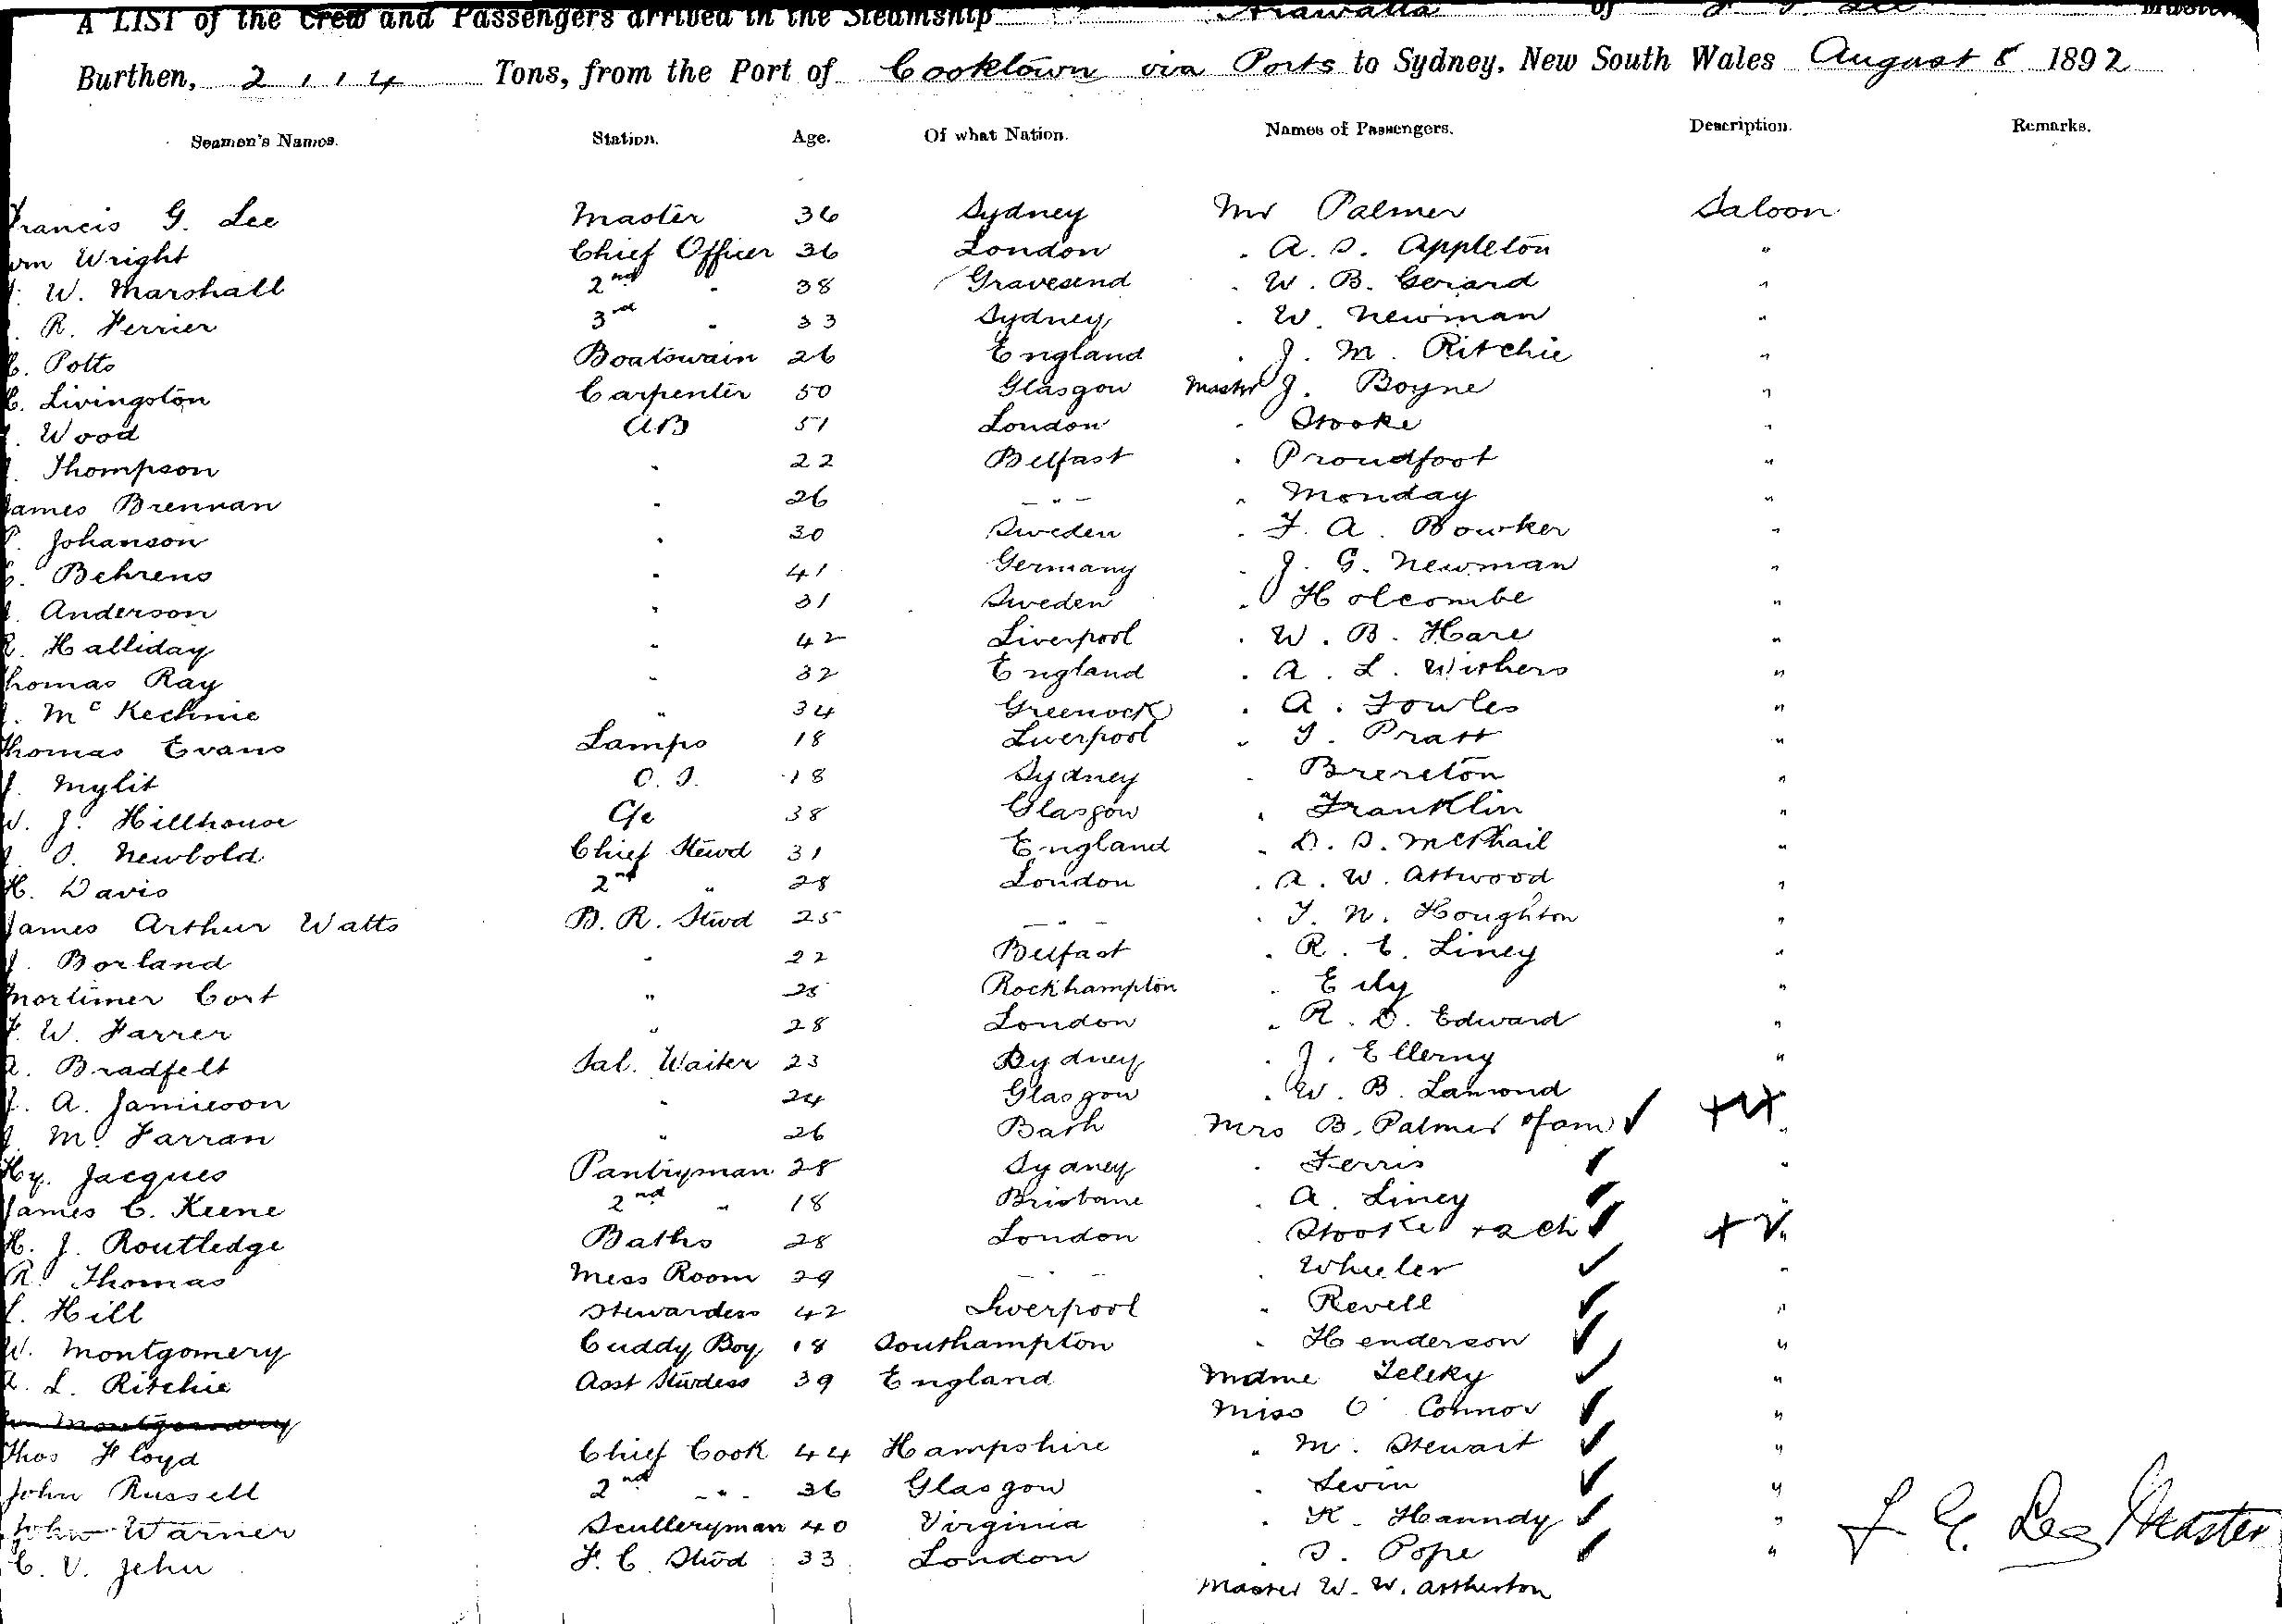 A LIST of the Crew and Passengers arrived in the Steamship Arawatta of F. G. Lee Master
Burthen, 2114 Tons, from the Port of Cooktown via Ports to Sydney, New South Wales August 5 1892
Seamen's Names. Station. Age. Of what Nation. Names of Passengers. Description. Remarks.
Francis G. Lee Master 36 Sydney Mr Palmer Saloon
Wm Wright Chief Officer 36 London . A. S. Appleton "
W. Marshall 2nd " 38 Gravesend . W. B. Gerard "
R. Ferrier 3rd " 33 Sydney . W. Newman "
C. Potts Boatswain 26 England . J. M. Ritchie "
C. Livingston Carpenter 50 Glasgow Master J. Boyne "
Wood AB 51 London . Stooke "
Thompson . 22 Belfast . Proudfoot "
James Brennan . 26 - " - " Monday "
P. Johanson . 30 Sweden . F. A. Bowker "
Behrens . 41 Germany . J. G. Newman "
Anderson " 31 Sweden . Holcombe "
R. Halliday " 42 Liverpool . W. B. Hare "
Thomas Ray " 32 England . A. L. Withers "
McKechnie " 34 Greenock . A. Fowles "
Thomas Evans Lamps 18 Liverpool " T. Pratt "
J. Mylit O.S. 18 Sydney . Brereton "
W. J. Hillhouse C/e 38 Glasgow . Franklin "
Newbold Chief Stewd 31 England . D. S. McPhail "
H. Davis 2nd " 28 London . A. W. Attwood "
James Arthur Watts B. R. Stwd 25 - " - . T. N. Houghton "
J. Borland " 22 Belfast . R. C. Liney "
Mortimer Cort " 25 Rockhampton . Eily "
F. W. Farrer " 28 London " R. D. Edward "
A. Bradfelt Sal. Waiter 23 Sydney . J. Ellerny "
J. A. Jamieson " 24 Glasgow . W. B. Lamond "
J. M. Farran " 26 Bath Mrs B. Palmer & fam ✓ "
Hy. Jacques Pantryman 28 Sydney . Ferris ✓ "
James C. Keene 2nd " 18 Brisbane . A. Liney ✓ "
H. J. Routledge Baths 28 London . Stooke + 2 ch ✓ "
R. Thomas Mess Room 29 - " - . Wheeler ✓ "
Hill Stewardess 42 Liverpool " Revell ✓ "
W. Montgomery Cuddy Boy 18 Southampton . Henderson ✓ "
A. L. Ritchie Asst Stwdess 39 England Mdme Teleky ✓ "
Wm Montgomery Miss O'Connor ✓ "
Thos Floyd Chief Cook 44 Hampshire " M. Stewart ✓ "
John Russell 2nd - " - 36 Glasgow . Levin ✓ "
John Warner Sculleryman 40 Virginia . K. Hanndy ✓ "
C. V. Jehu F. C. Stwd 33 London . S. Pope ✓ "
F G. Lee Master
Master W. W. Attherton